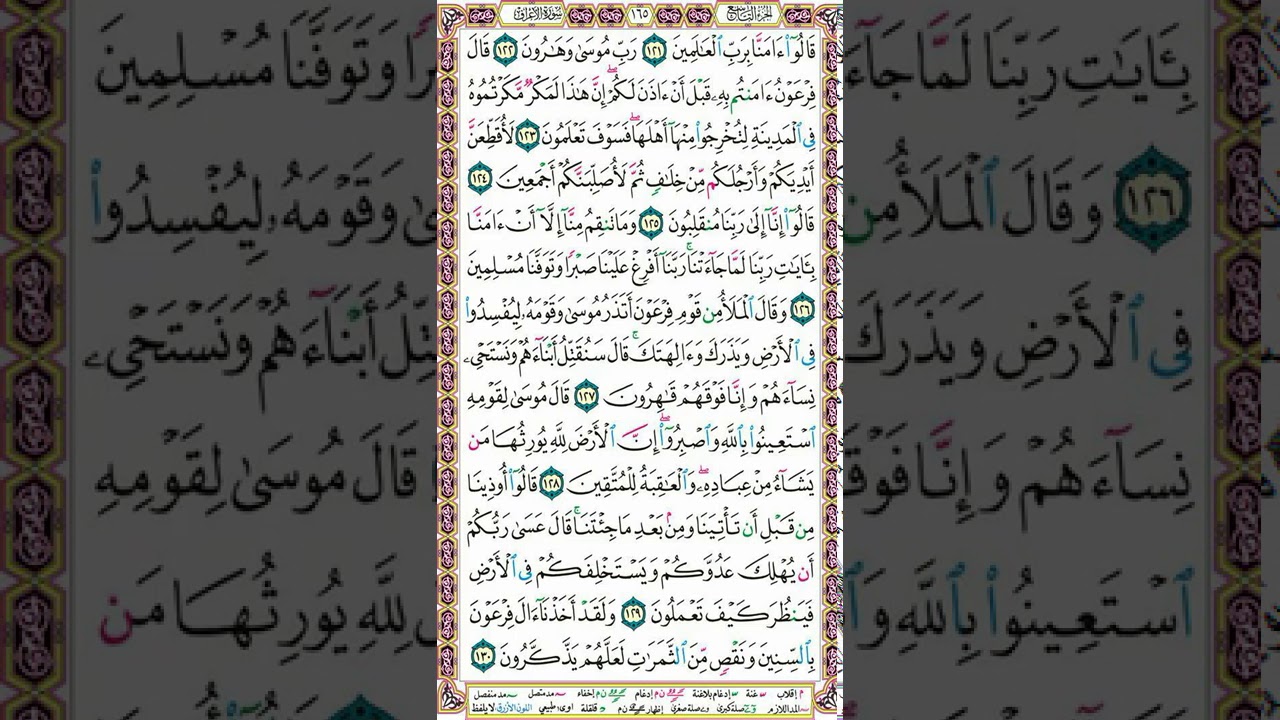 الجزء التاسع ١٦٥ سورة الأعراف
قَالُوٓا۟ ءَامَنَّا بِرَبِّ ٱلْعَٰلَمِينَ ١٢١ رَبِّ مُوسَىٰ وَهَٰرُونَ ١٢٢ قَالَ
فِرْعَوْنُ ءَامَنتُم بِهِۦ قَبْلَ أَنْ ءَاذَنَ لَكُمْ ۖ إِنَّ هَٰذَا لَمَكْرٌ مَّكَرْتُمُوهُ
فِى ٱلْمَدِينَةِ لِتُخْرِجُوا۟ مِنْهَآ أَهْلَهَا ۖ فَسَوْفَ تَعْلَمُونَ ١٢٣ لَأُقَطِّعَنَّ
أَيْدِيَكُمْ وَأَرْجُلَكُم مِّنْ خِلَٰفٍ ثُمَّ لَأُصَلِّبَنَّكُمْ أَجْمَعِينَ ١٢٤
قَالُوٓا۟ إِنَّآ إِلَىٰ رَبِّنَا مُنقَلِبُونَ ١٢٥ وَمَا تَنقِمُ مِنَّآ إِلَّآ أَنْ ءَامَنَّا
بِـَٔايَٰتِ رَبِّنَا لَمَّا جَآءَتْنَا ۚ رَبَّنَآ أَفْرِغْ عَلَيْنَا صَبْرًا وَتَوَفَّنَا مُسْلِمِينَ
١٢٦ وَقَالَ ٱلْمَلَأُ مِن قَوْمِ فِرْعَوْنَ أَتَذَرُ مُوسَىٰ وَقَوْمَهُۥ لِيُفْسِدُوا۟
فِى ٱلْأَرْضِ وَيَذَرَكَ وَءَالِهَتَكَ ۚ قَالَ سَنُقَتِّلُ أَبْنَآءَهُمْ وَنَسْتَحْىِۦ
نِسَآءَهُمْ وَإِنَّا فَوْقَهُمْ قَٰهِرُونَ ١٢٧ قَالَ مُوسَىٰ لِقَوْمِهِ
ٱسْتَعِينُوا۟ بِٱللَّهِ وَٱصْبِرُوٓا۟ ۖ إِنَّ ٱلْأَرْضَ لِلَّهِ يُورِثُهَا مَن
يَشَآءُ مِنْ عِبَادِهِۦ ۖ وَٱلْعَٰقِبَةُ لِلْمُتَّقِينَ ١٢٨ قَالُوٓا۟ أُوذِينَا
مِن قَبْلِ أَن تَأْتِيَنَا وَمِنۢ بَعْدِ مَا جِئْتَنَا ۚ قَالَ عَسَىٰ رَبُّكُمْ
أَن يُهْلِكَ عَدُوَّكُمْ وَيَسْتَخْلِفَكُمْ فِى ٱلْأَرْضِ
فَيَنظُرَ كَيْفَ تَعْمَلُونَ ١٢٩ وَلَقَدْ أَخَذْنَآ ءَالَ فِرْعَوْنَ
بِٱلسِّنِينَ وَنَقْصٍ مِّنَ ٱلثَّمَرَٰتِ لَعَلَّهُمْ يَذَّكَّرُونَ ١٣٠
م إقلاب غنة إدغام بلاغنة ن م إدغام ن م إخفاء مد متصل مد منفصل
المد اللازم صلة كبرى صلة صغرى إظهار ن م قلقلة اوى: طبيعي اللون الأزرق لا يلفظ